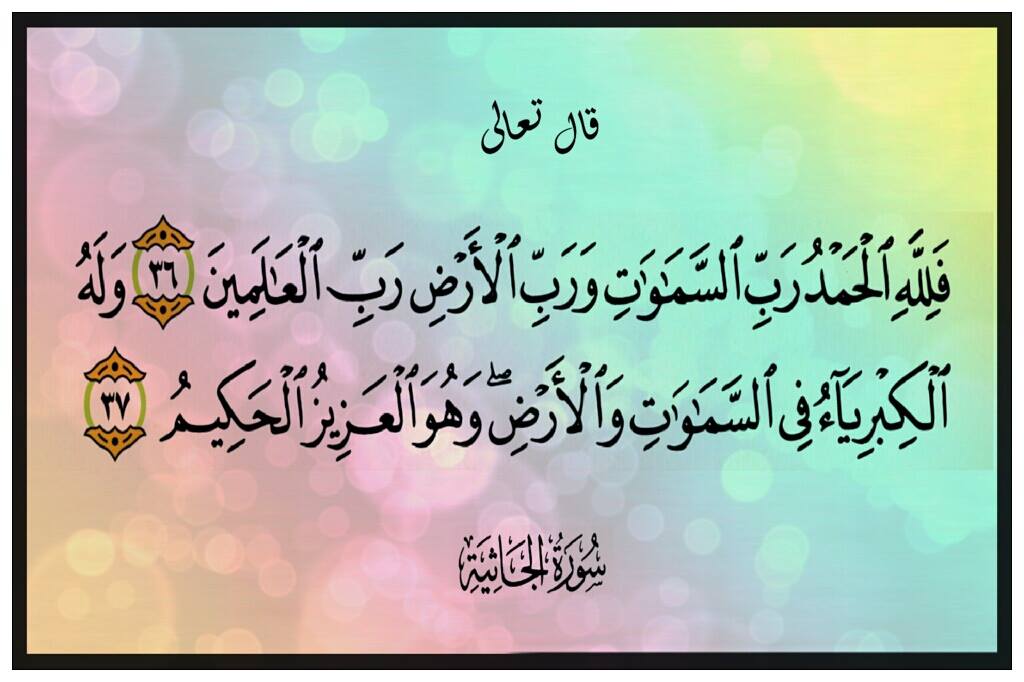 قال تعالى
فَلِلَّهِ ٱلْحَمْدُ رَبِّ ٱلسَّمَٰوَٰتِ وَرَبِّ ٱلْأَرْضِ رَبِّ ٱلْعَٰلَمِينَ ٣٦ وَلَهُ
ٱلْكِبْرِيَآءُ فِى ٱلسَّمَٰوَٰتِ وَٱلْأَرْضِۖ وَهُوَ ٱلْعَزِيزُ ٱلْحَكِيمُ ٣٧
سُورَةُ الجَاثِيَةِ